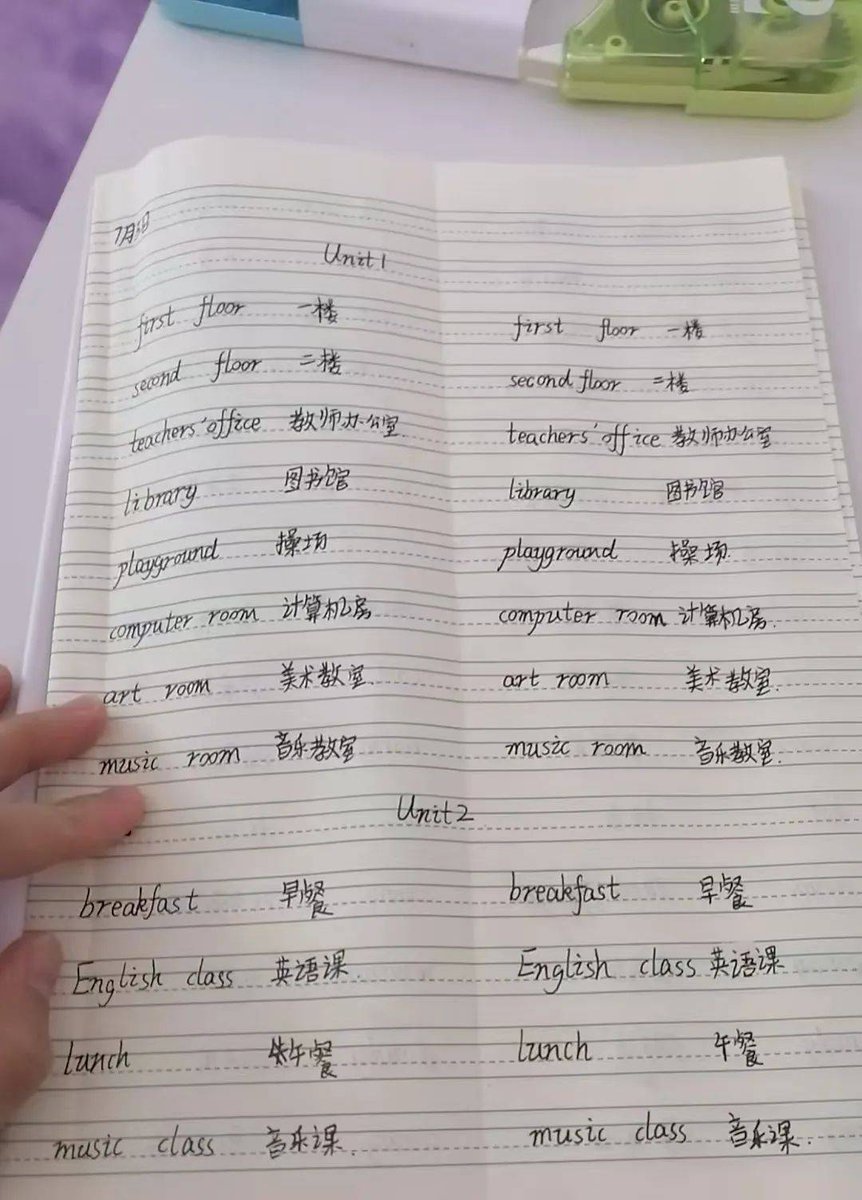 7月5日
Unit 1
first floor 一楼 first floor 一楼
second floor 二楼 second floor 二楼
teachers' office 教师办公室 teachers' office 教师办公室
library 图书馆 library 图书馆
playground 操场 playground 操场.
computer room 计算机房 computer room 计算机房.
art room 美术教室 art room 美术教室.
music room 音乐教室 music room 音乐教室.
Unit 2
breakfast 早餐 breakfast 早餐
English class 英语课. English class 英语课
lunch 午餐 lunch 午餐
music class 音乐课. music class 音乐课.